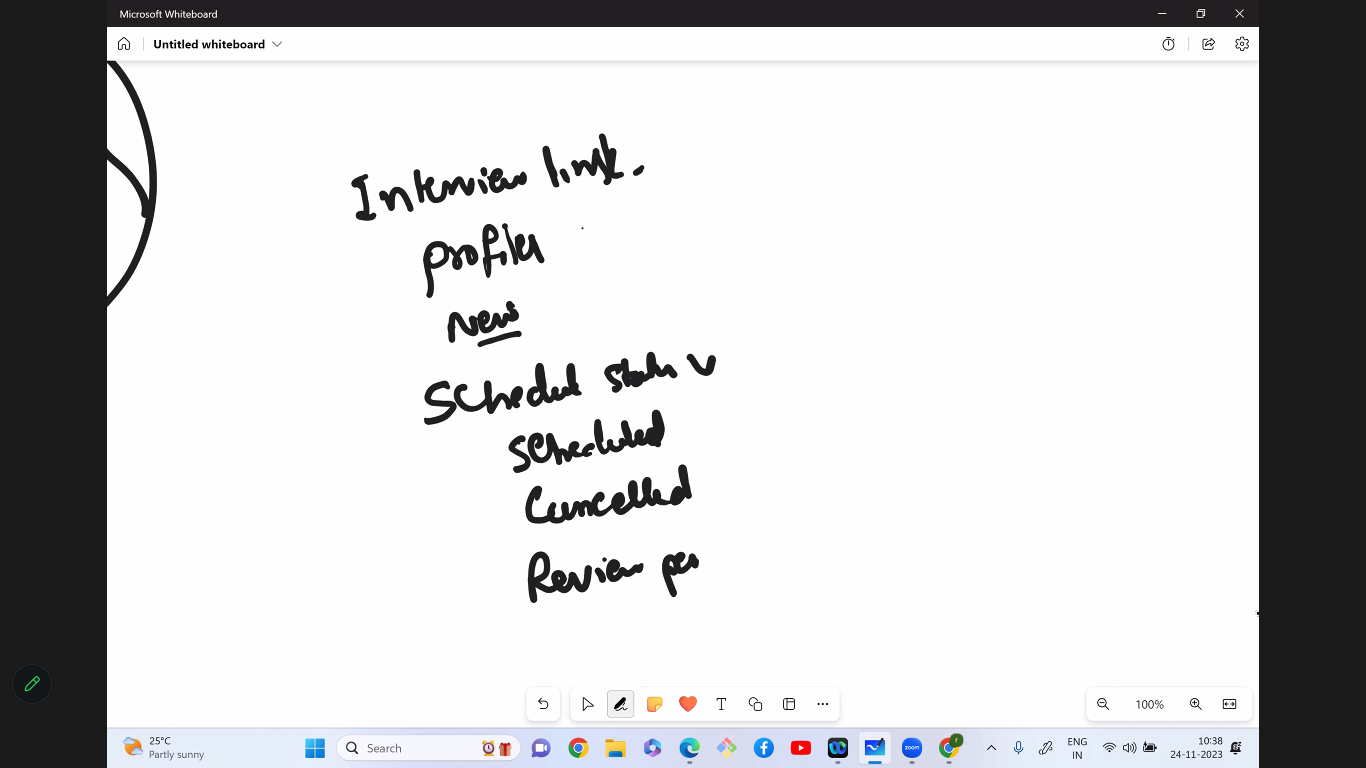 Microsoft Whiteboard
Untitled whiteboard
Interview link.
profiles
New
Schedule status v
Scheduled
Cancelled
Review pen
T
100%
25°C
Partly sunny
Search
zoom
ENG
IN
10:38
24-11-2023